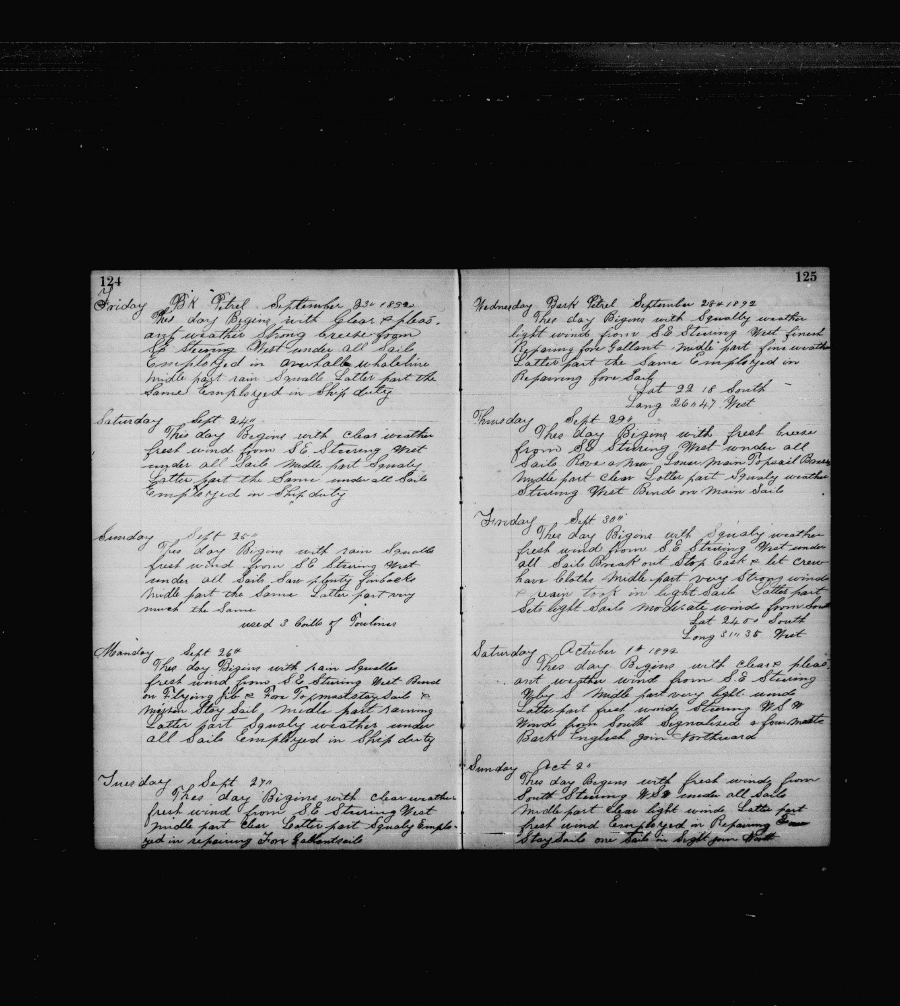 124
Friday Bk Petrel September 23d 1892
This day Bigins with Clear & pleas-
ant weather Strong breese from
SE Stering West under all Sails
Employed in whaleline
midle part rain Squalls Latter part the
Same Employed in Ship duty
Saturday Sept 24th
This day Bigins with clear weather
fresh wind from S.E Stering West
under all Sails midle part Squaly
Latter part the Same under all Sails
Employed in Ship duty
Sunday Sept 25th
This day Bigins with rain Squalls
fresh wind from S E Stering West
under all Sails Saw plenty finbacks
midle part the Same Latter part very
much the Same
used 3 Coills of Towlines
Manday Sept 26th
This day Bigins with rain Squalles
fresh wind from S E Stering West Bend
on Flying jib & Fore Topmaststay Sails &
Stay Sail, midle part raining
Latter part Squaly weather under
all Sails Employed in Ship duty
Tuesday Sept 27th
This day Bigins with clear weather
fresh wind from S E Stering West
midle part clear Latter part Squaly Emplo-
yed in repairing Fore Gallantsails
125
Wednesday Bark Petrel September 28th 1892
This day Bigins with Squally weather
light winds from S E Stering West finish
Repairing fore Gallant midle part fine weather
Latter part the Same Employed in
Repairing fore Sail
Lat 22 18 South
Long 26 " 47 West
Thursday Sept 29th
This day Bigins with fresh breese
from S E Stering West under all
Sails Rove a new Lower main Topsail
Midle part Clear Latter part Squaly weather
Stering West Bends on Main Sails
Friday Sept 30th
This day Bigins with Squaly weather
fresh wind from S E Stering West under
all Sails Break out Slop Cask & let crew
have Cloths Midle part very Strong winds
& rain took in light Sails Latter part
Sets light Sails moderate winds from South
Lat 24 00 South
Long 31 " 35 West
Saturday October 1st 1892
This day Bigins with clear & pleas-
ant weather wind from S E Stering
W by S Midle part very light winds
Latter part fresh winds Stering W S W
Winds from South Signalised a four maste
Bark English goin Northward
Sunday Oct 2d
This day Begins with fresh winds from
South Stering WSW under all Sails
midle part clear light winds Latter part
fresh wind Employed in Repairing
Stay Sails one Sails in Sight goin North